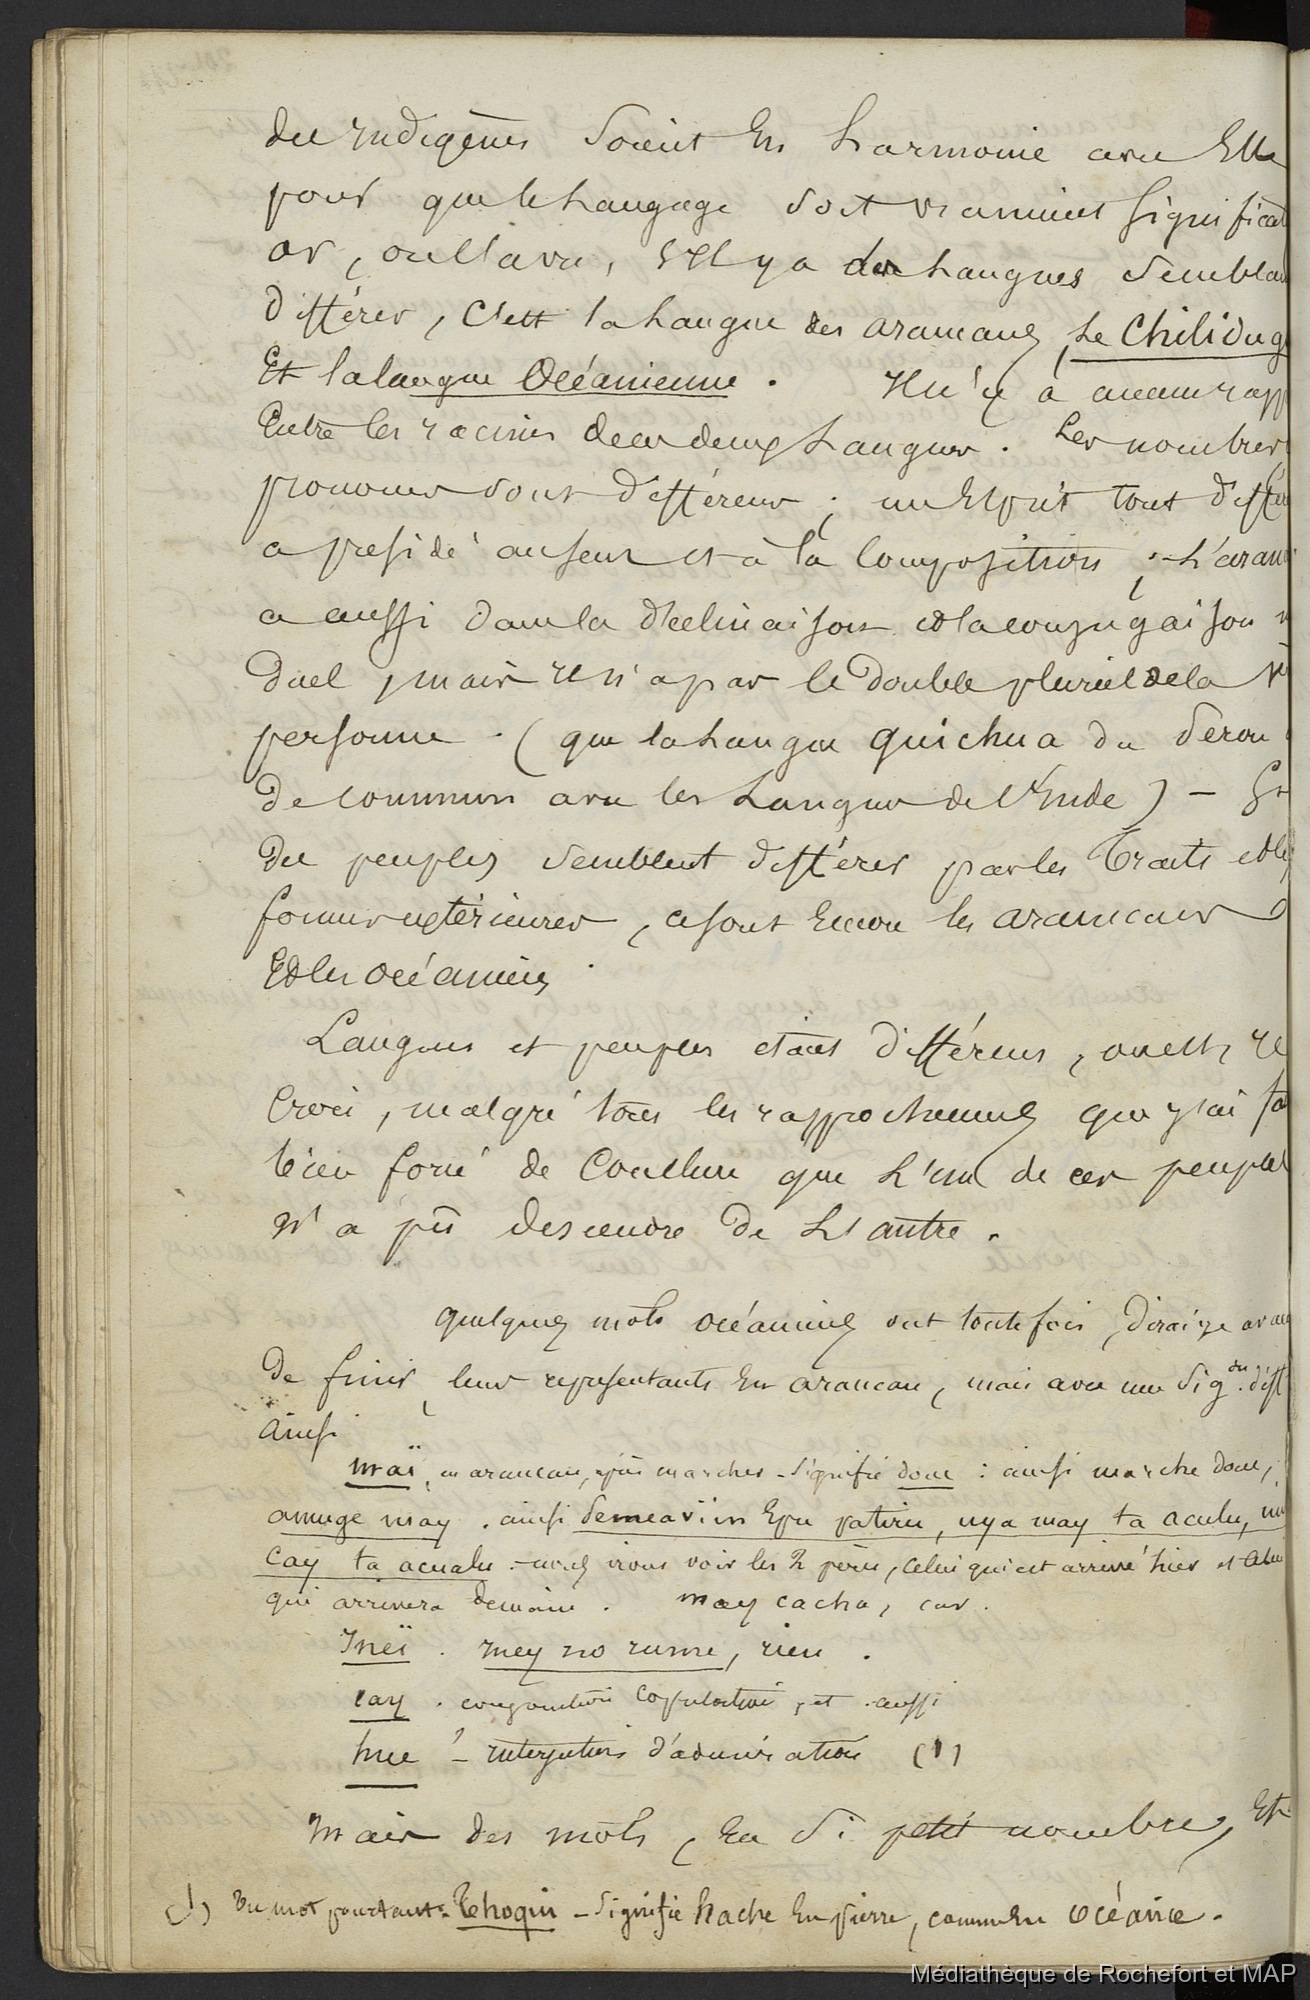 des indigènes soient en harmonie avec Elle
pour que le Langage soit vraiment significat
or, on l'a vu, s'il y a des Langues semblan
différer, C'est la Langue des araucans, Le Chilidug
Et la langue Océanienne. Il n'y a aucun rapp
Entre les racines de ces deux Langues. Les nombres,
pronoms sont différens ; un Esprit tout différ
a présidé au sens et à la Composition ; L'arau
a aussi dans la déclinaison et la conjugaison
duel, mais il n'a pas le double pluriel de la
personne. (que la Langue quichua du Pérou
de commun avec les Langues de l'Inde) –
des peuples semblent différer par les traits et les
formes extérieures, ce sont Encore les araucans
Et les océaniens.
Langues et peuples étant différens, on est, je
crois, malgré tous les rapprochemens que j'ai fa
bien forcé de Conclure que L'un de ces peuples
n'a pu descendre de L'autre.
quelques mots océaniens ont toutefois, dirai-je avan
de finir, leurs représentants En araucan, mais avec une Sig.on diff
ainsi
maï, en araucan, puis marcher – signifie donc : ainsi marche donc,
amuge may. ainsi demeaviin Epu patiru, uya may ta aculu,
cay ta acualu – nous irons voir les 2 pères, celui qui est arrivé hier et celui
qui arrivera demain. may cacha, car.
Ineï. iney no rume, rien.
cay. conjonction copulative, et. aussi
hue ! – interjection d'admiration (1)
Mais des mots, En si petit nombre, Et
(1) Un mot pourtant – Thoqui – signifie hache En pierre, comme En Océanie.
Médiathèque de Rochefort et MAP